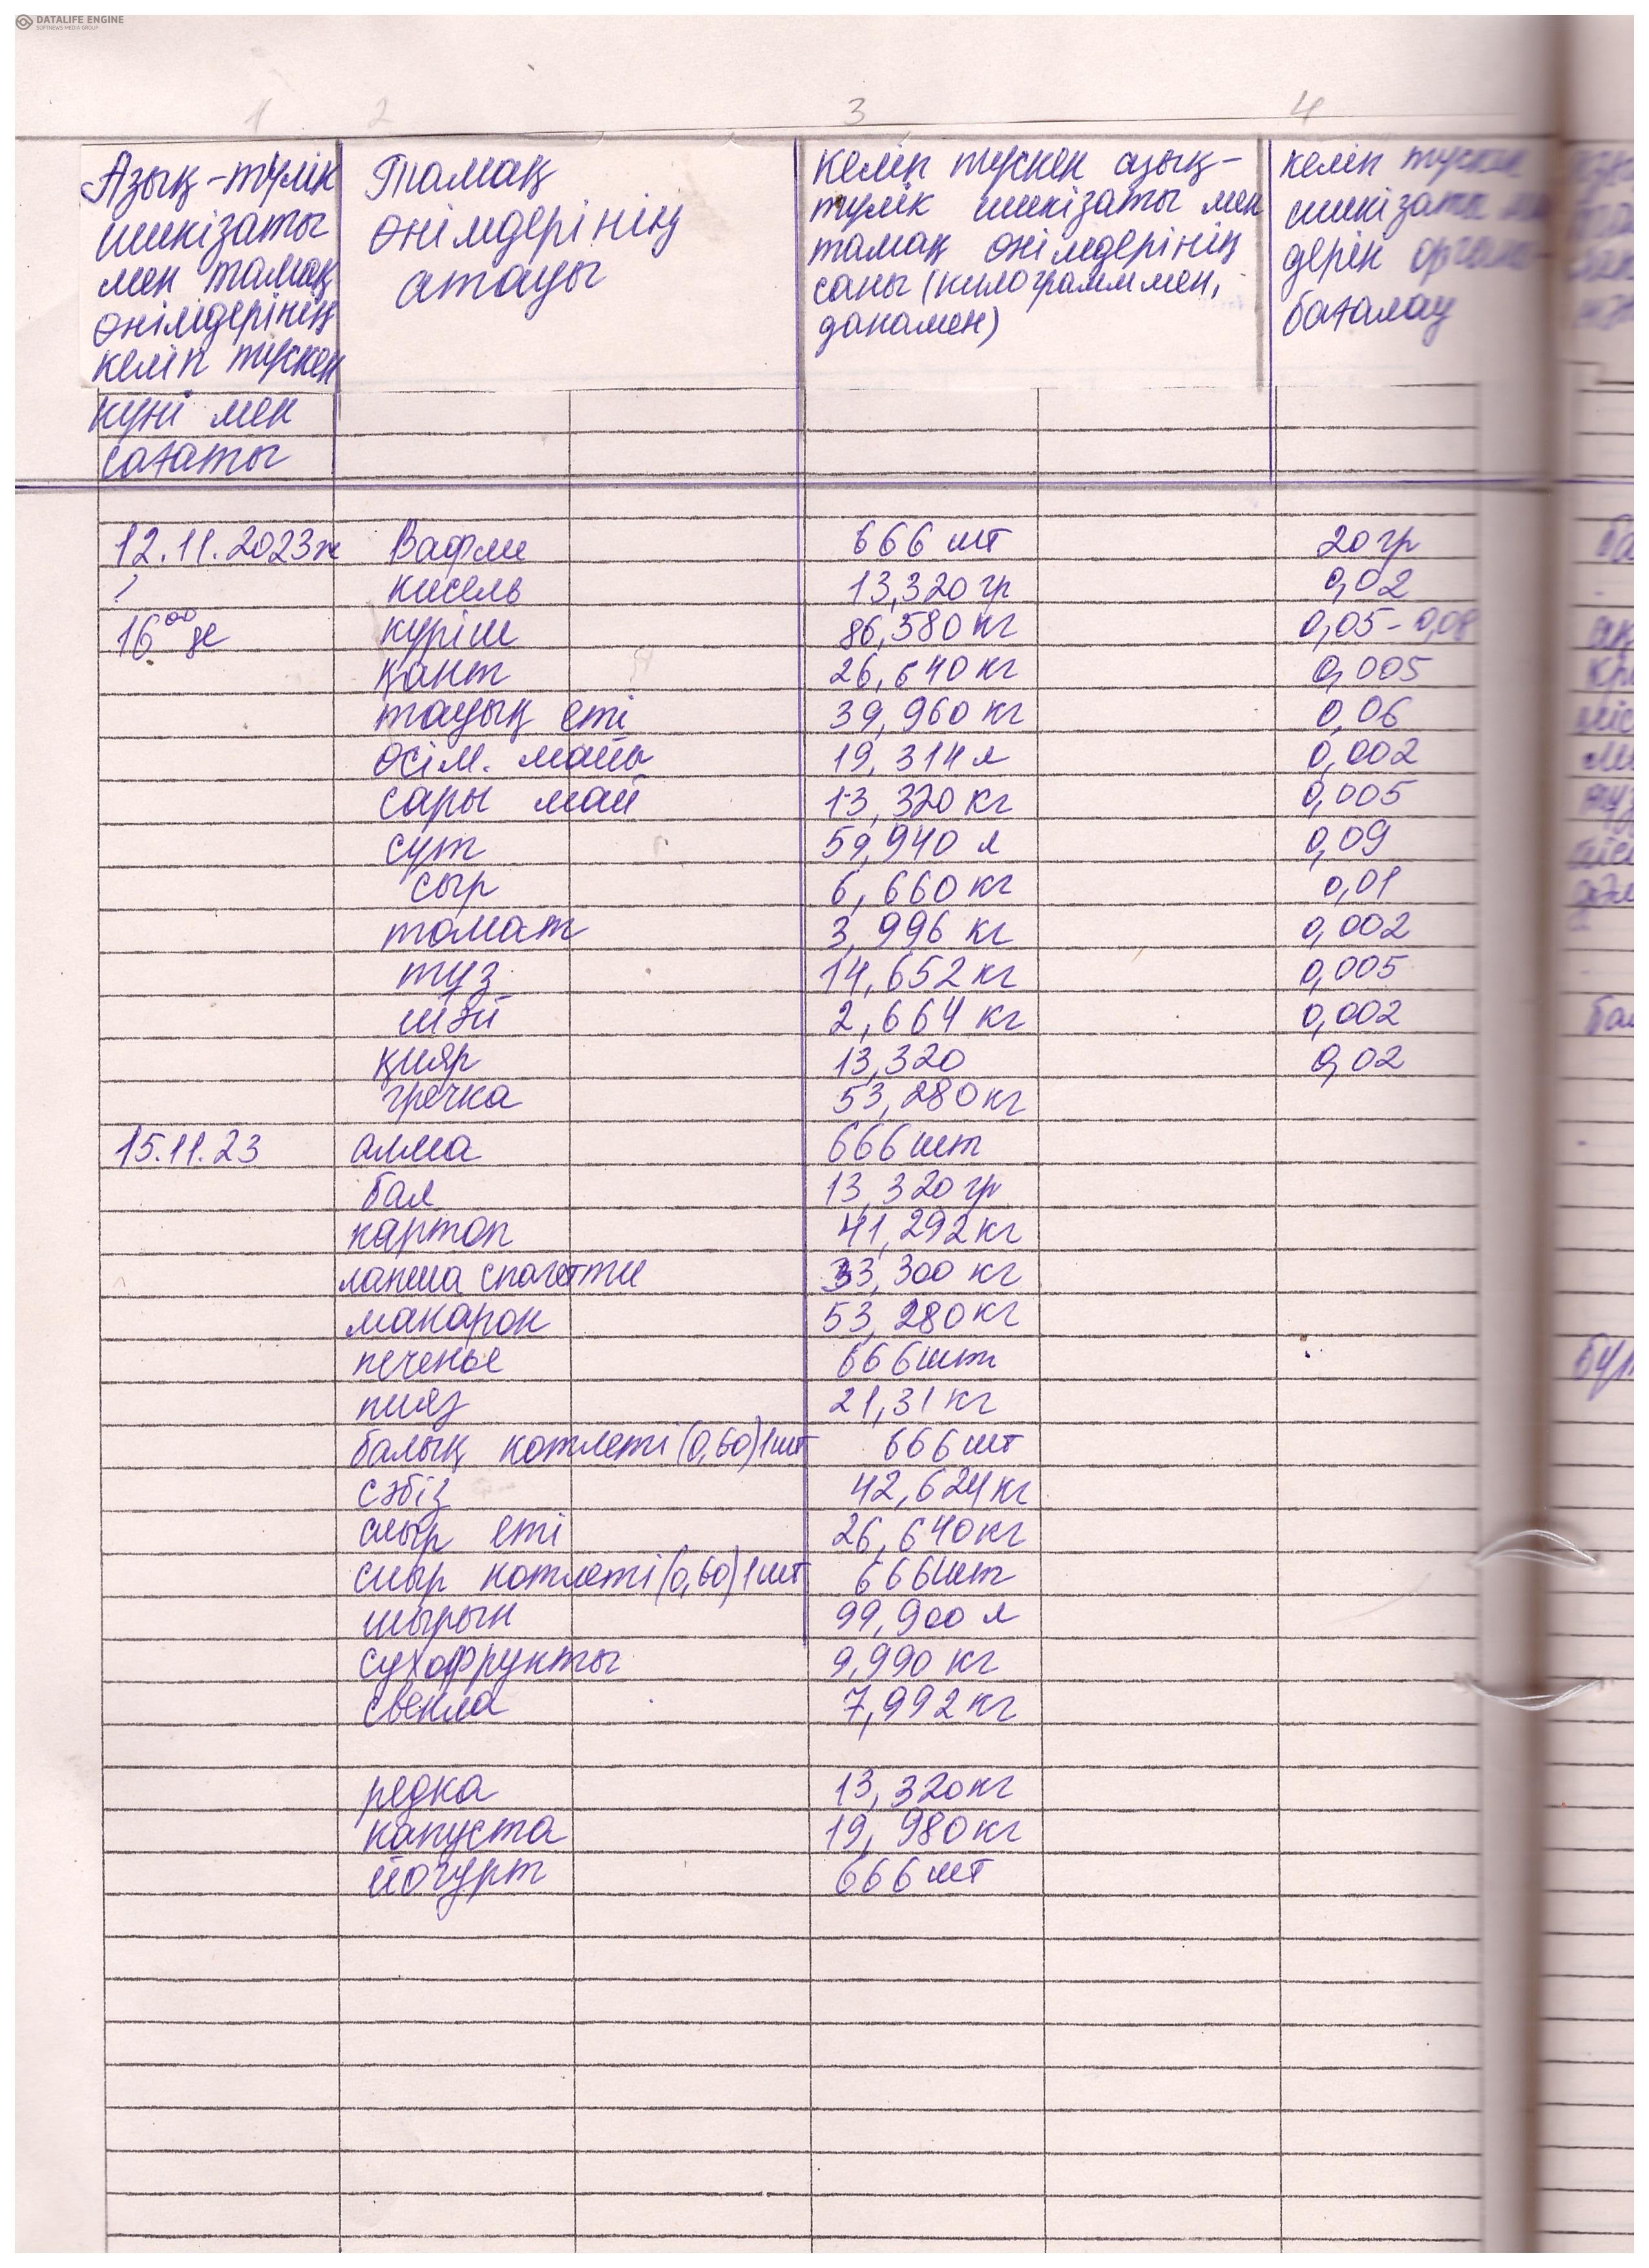 DATALIFE ENGINE
SOFTNEWS MEDIA GROUP
1 2 3 4
Азық-түлік
шикізаты
мен тамақ
өнімдерінің
келіп түскен
күні мен
сағаты
Тамақ
өнімдерінің
атауы
келіп түскен азық-
түлік шикізаты мен
тамақ өнімдерінің
саны (килограммен,
данамен)
келіп түскен
шикізаты
дерін
бағалау
12.11.2023ж Вафли 666 шт 20 гр
кисель 13,320 гр 0,02
16 00 де күріш 86,580 кг 0,05-0,08
қант 26,640 кг 0,005
тауық еті 39,960 кг 0,06
өсім. майы 19,314 л 0,002
сары май 13,320 кг 0,005
сүт 59,940 л 0,09
сыр 6,660 кг 0,01
томат 3,996 кг 0,002
тұз 14,652 кг 0,005
шәй 2,664 кг 0,002
қияр 13,320 0,02
гречка 53,280 кг
15.11.23 алма 666 шт
бал 13,320 гр
картоп 41,292 кг
лапша спагетти 33,300 кг
макарон 53,280 кг
печенье 666 шт
пияз 21,31 кг
балық котлеті (0,60) 1шт 666 шт
сәбіз 42,624 кг
сиыр еті 26,640 кг
сиыр котлеті (0,60) 1 шт 666 шт
шырын 99,900 л
сухофрукты 9,990 кг
свекла 7,992 кг
редка 13,320 кг
капуста 19,980 кг
йогурт 666 шт